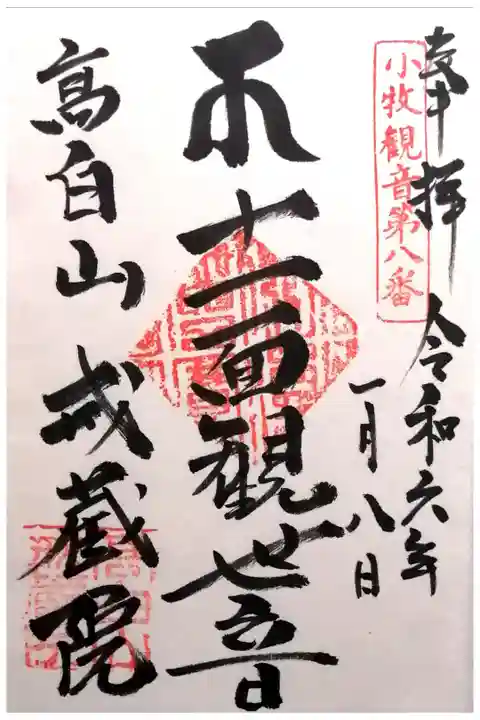 奉拝 令和六年
小牧観音第八番
一月八日
十一面観世音
高白山 戒蔵院